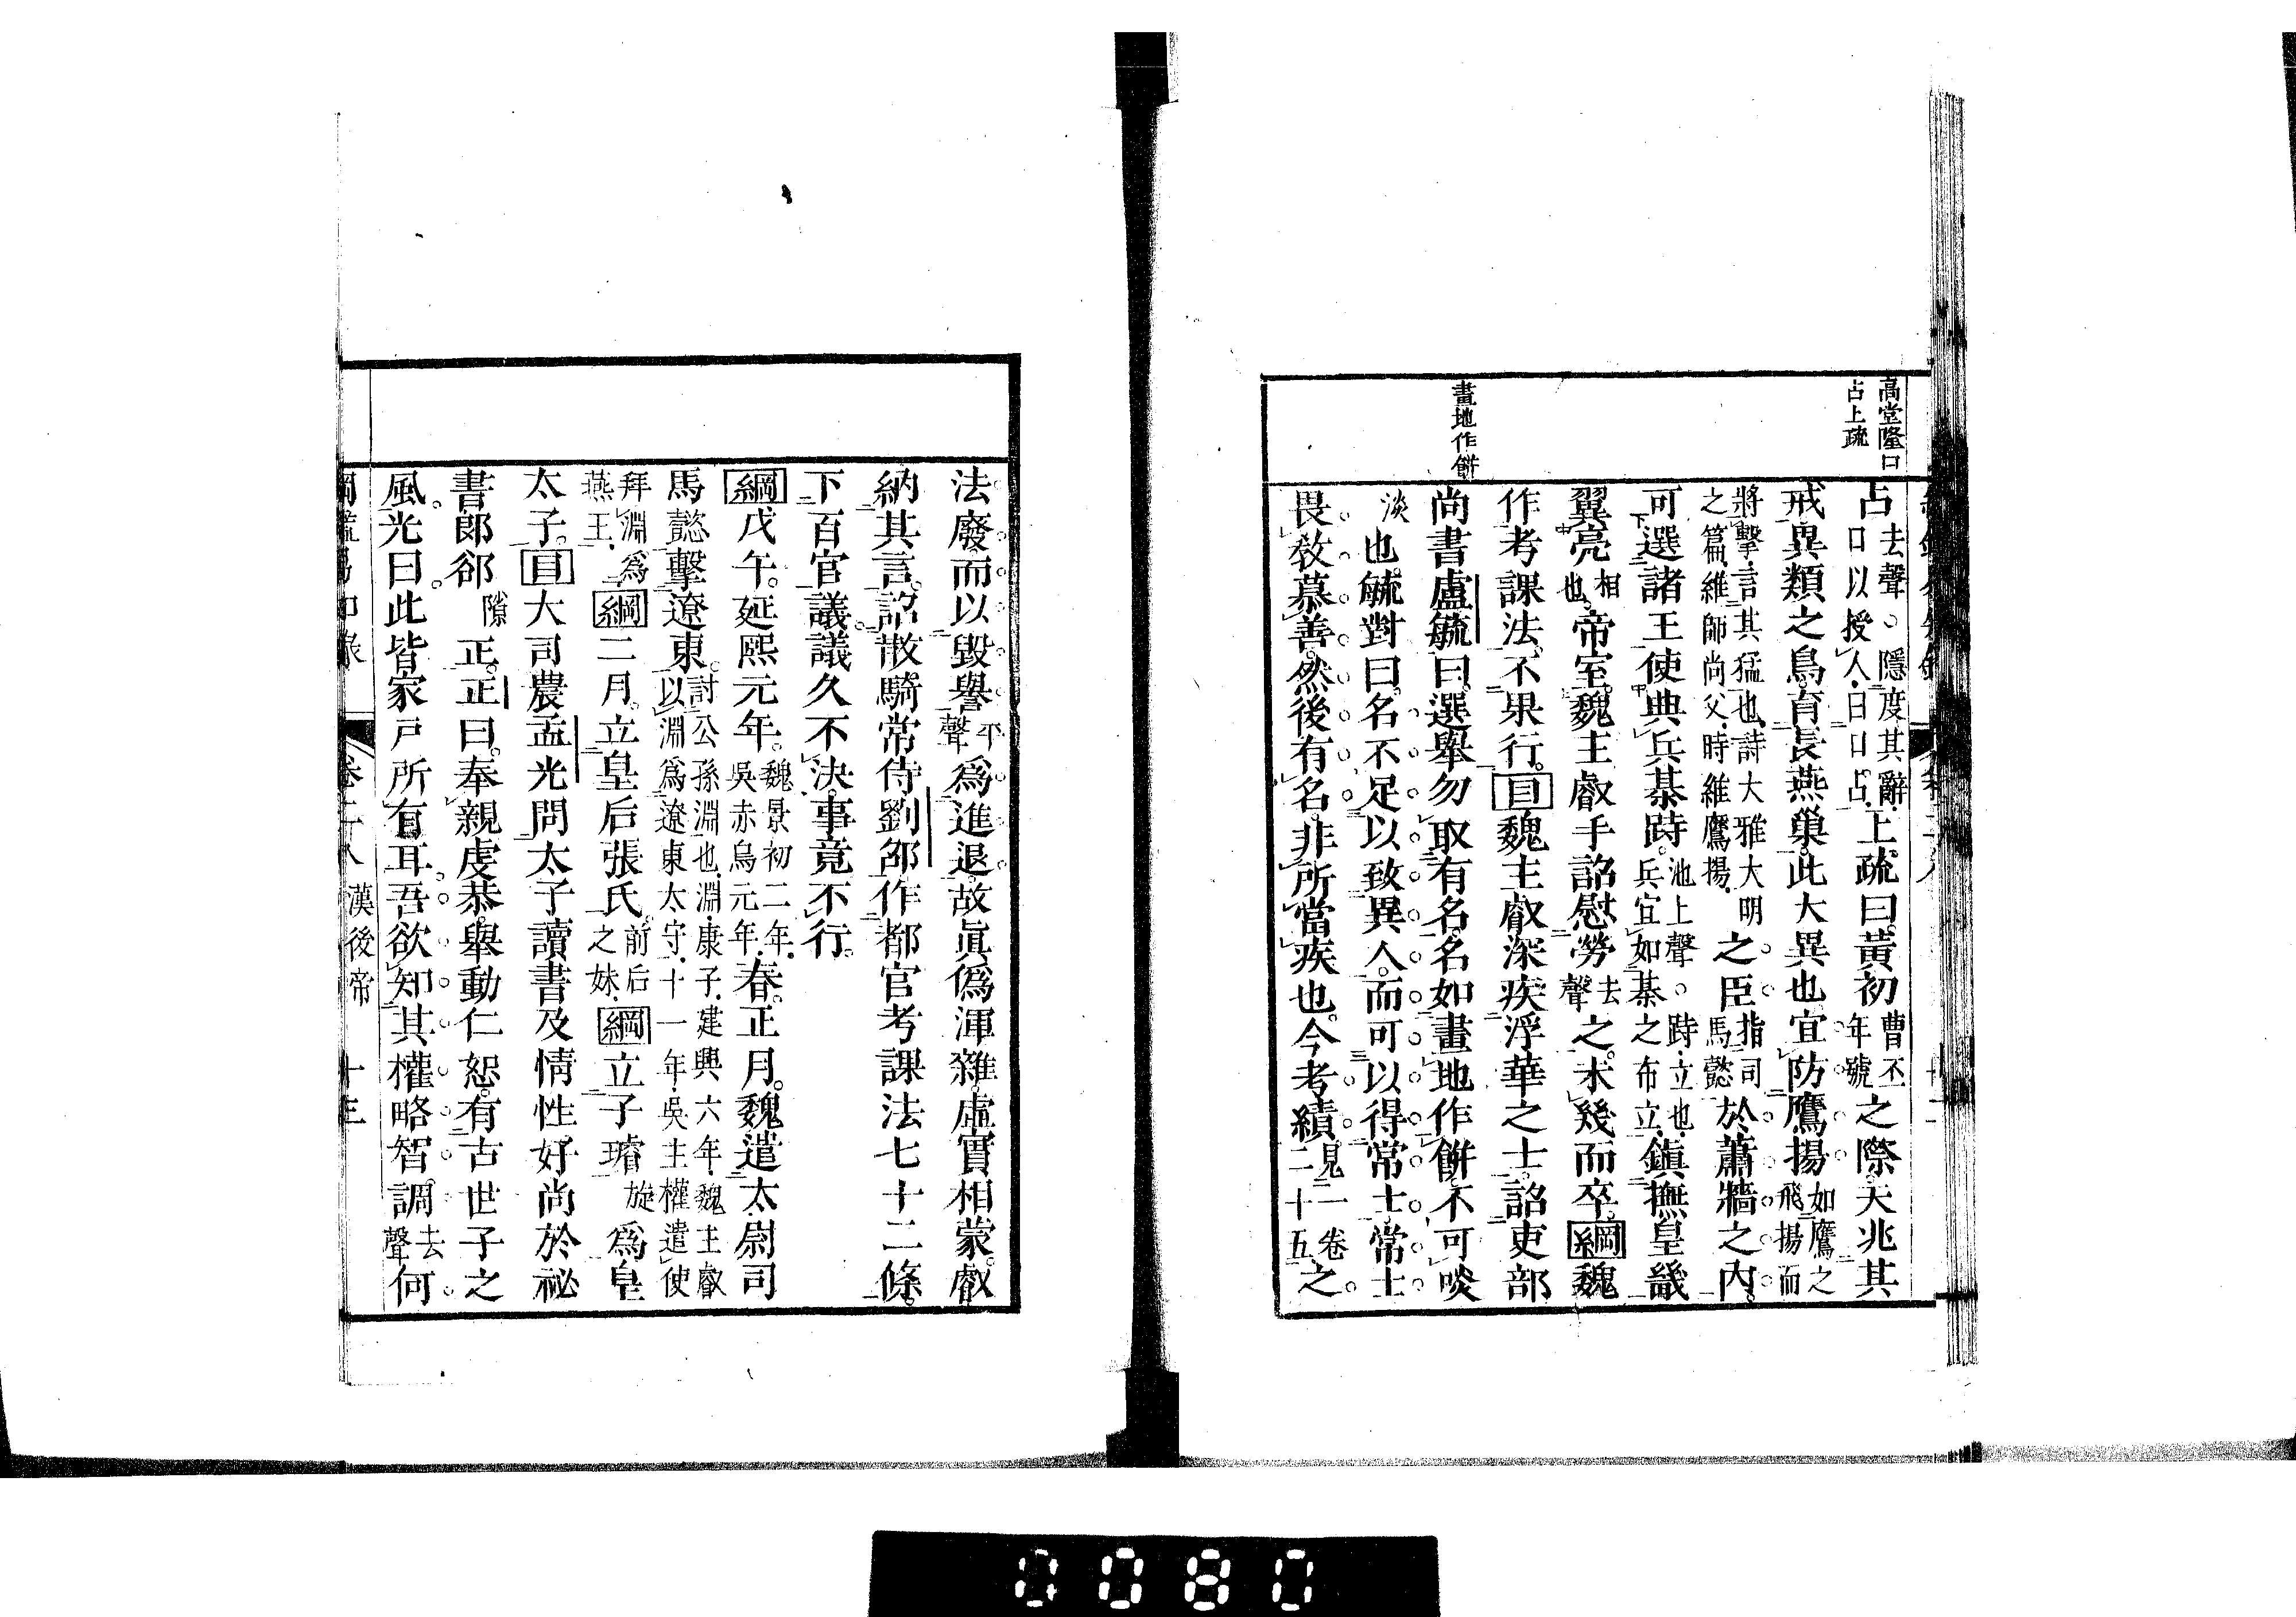 高堂隆口
占上疏
占去聲。隱度其辭口以授人曰口占上疏曰黃初曹丕年號之際天兆其
戒異類之鳥育長燕巢此大異也宜防鷹揚如鷹之飛揚而
將擊言其猛也詩大雅大明之篇維師尚父時維鷹揚之臣指司馬懿於蕭牆之內
可選諸王使典兵棊跱池上聲。跱立也兵宜如棊之布立鎮撫皇畿
翼亮相也帝室魏主叡手詔慰勞去聲之未幾而卒綱魏
作考課法不果行目魏主叡深疾浮華之士詔吏部
畫地作餅
尚書盧毓曰選舉勿取有名名如畫地作餅不可啖
淡也毓對曰名不足以致異人而可以得常士常士
畏敎慕善然後有名非所當疾也今考績見二十一卷五之
法廢而以毀譽平聲爲進退故眞僞渾雜虛實相蒙叡
納其言詔散騎常侍劉邵作都官考課法七十二條
下百官議議久不決事竟不行
綱戊午延熙元年魏景初二年吳赤烏元年春正月魏遣太尉司
馬懿擊遼東討公孫淵也淵康子建興六年魏主叡以淵爲遼東太守十一年吳主權遣使
拜淵爲燕王綱二月立皇后張氏前后之妹綱立子璿旋爲皇
太子目大司農孟光問太子讀書及情性好尚於祕
書郞郤隙正正曰奉親虔恭舉動仁恕有古世子之
風光曰此皆家戶所有耳吾欲知其權略智調去聲何
卷二十八 漢後帝 十三
0080